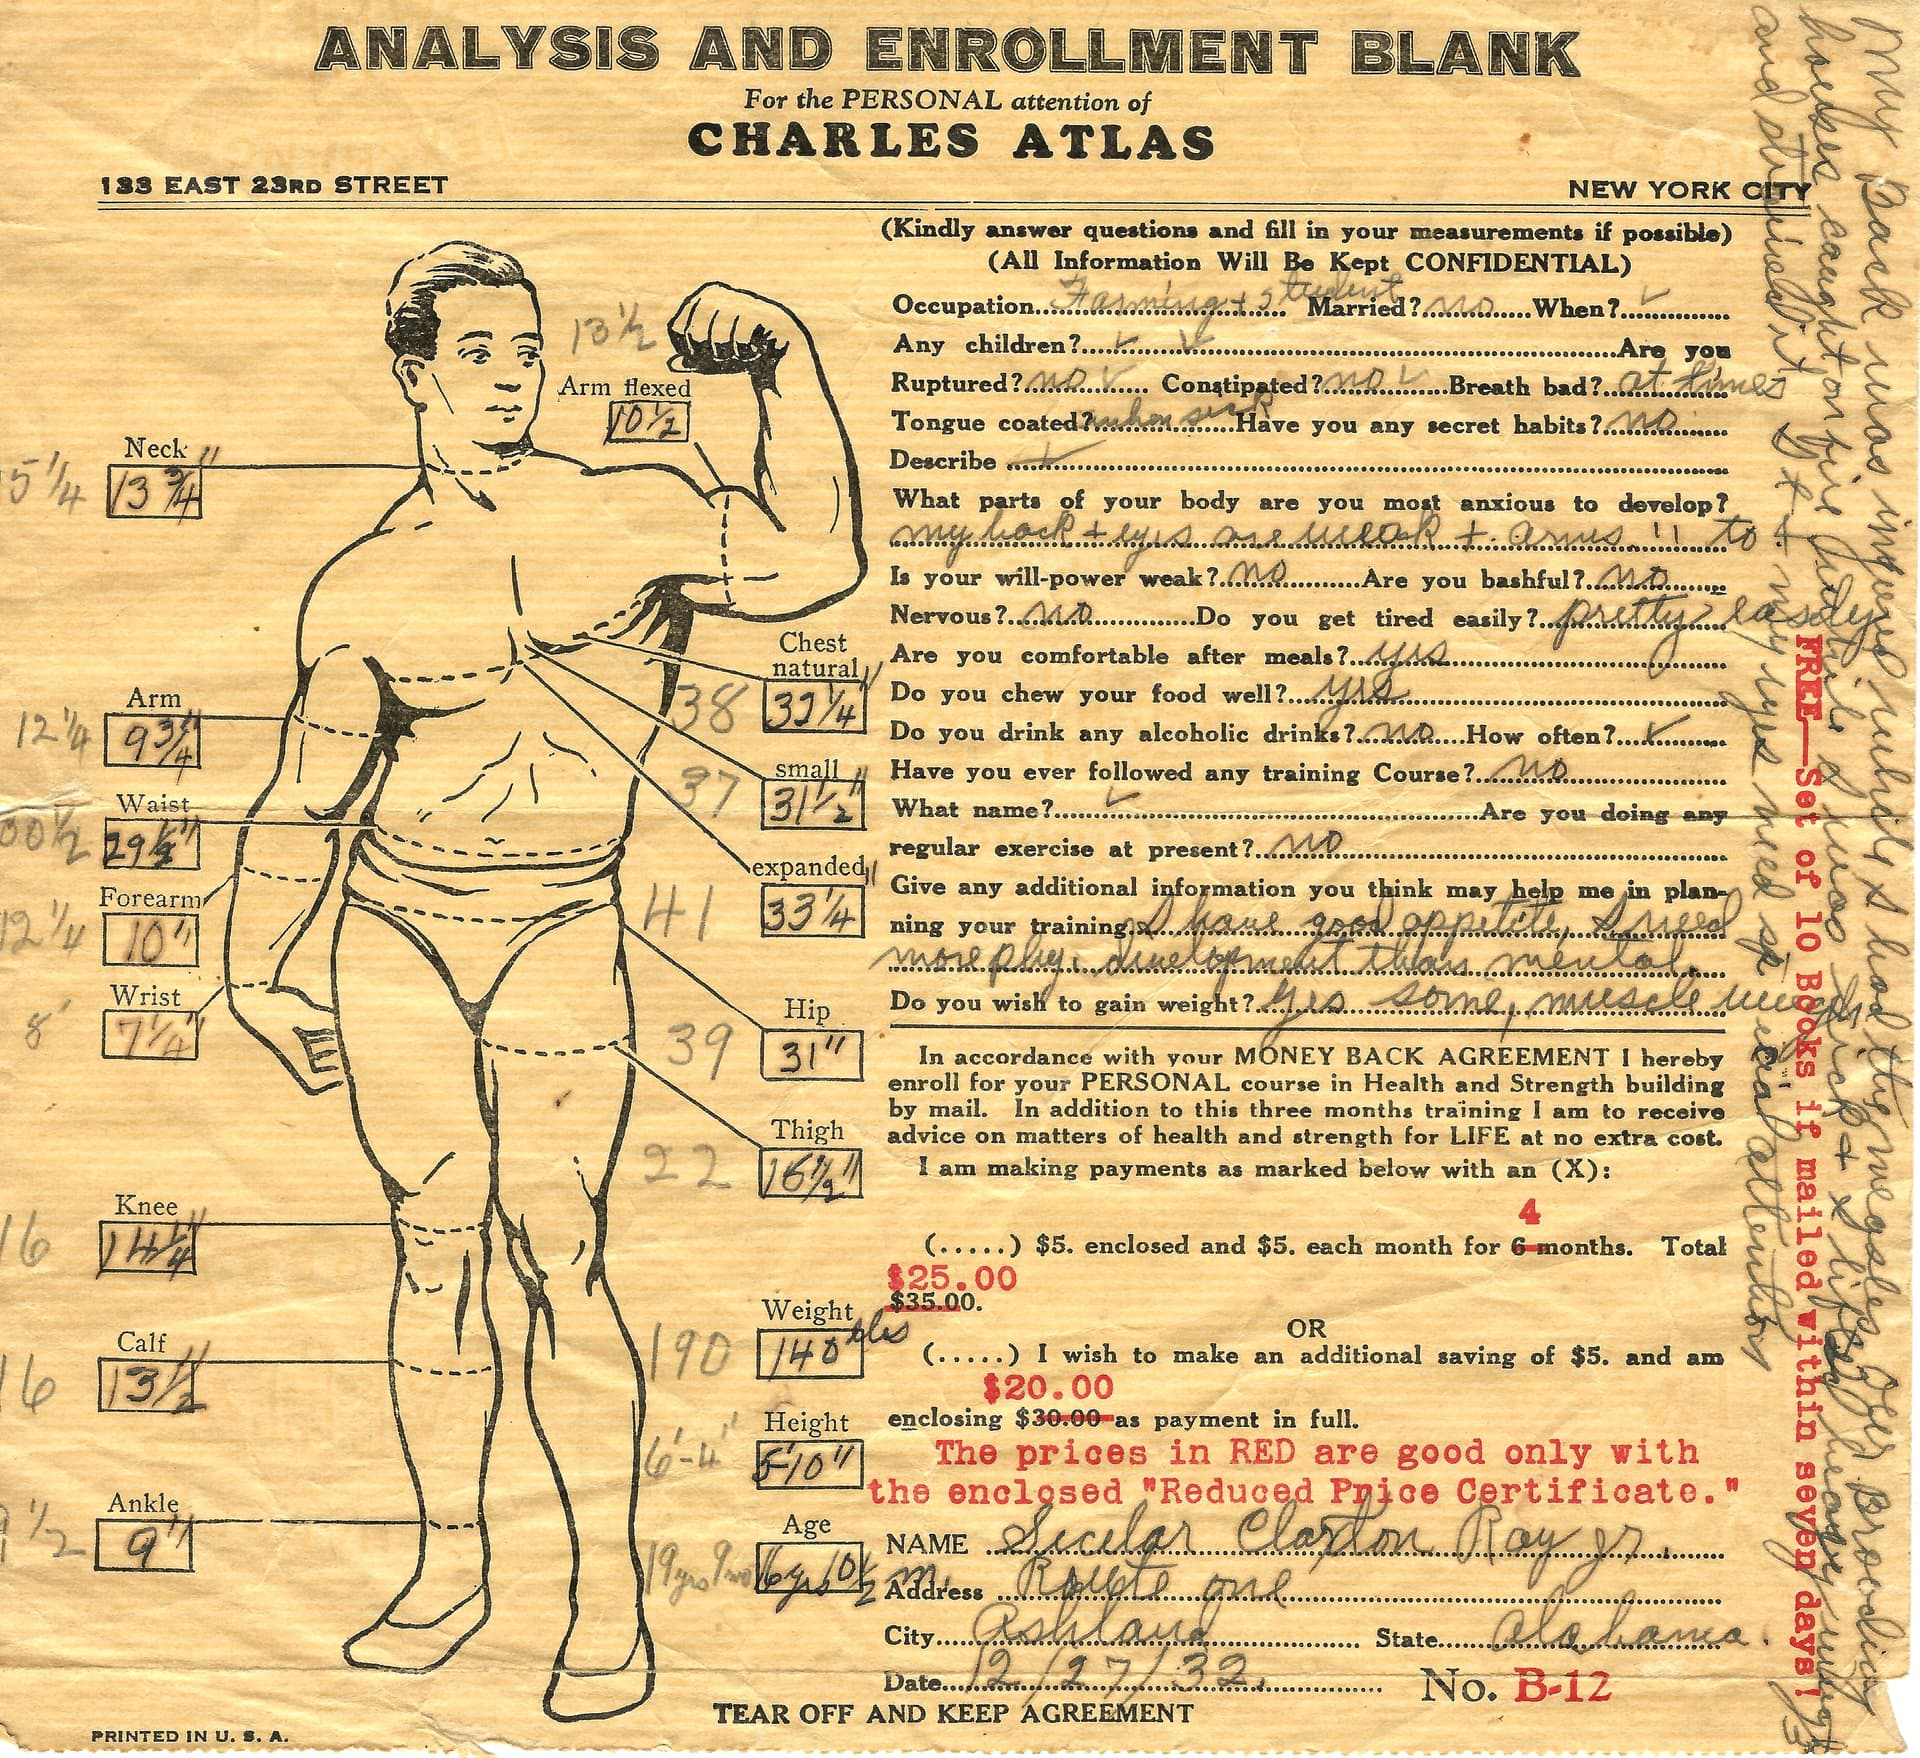 ANALYSIS AND ENROLLMENT BLANK
For the PERSONAL attention of
CHARLES ATLAS
133 EAST 23RD STREET
NEW YORK CITY
(Kindly answer questions and fill in your measurements if possible)
(All Information Will Be Kept CONFIDENTIAL)
Occupation Farming + student Married? no When? ✓
Any children? ✓ ✓ Are you
Ruptured? no ✓ Constipated? no ✓ Breath bad? at times
Tongue coated? when sick Have you any secret habits? no
Describe
What parts of your body are you most anxious to develop?
my back + eyes are weak + arms !! to
Is your will-power weak? no Are you bashful? no
Nervous? no Do you get tired easily? pretty easily
Are you comfortable after meals? yes
Do you chew your food well? yes
Do you drink any alcoholic drinks? no How often? ✓
Have you ever followed any training Course? no
What name? ✓ Are you doing any
regular exercise at present? no
Give any additional information you think may help me in plan-
ning your training. I have good appetite, I need
more phy. development than mental.
Do you wish to gain weight? yes some, muscle
In accordance with your MONEY BACK AGREEMENT I hereby
enroll for your PERSONAL course in Health and Strength building
by mail. In addition to this three months training I am to receive
advice on matters of health and strength for LIFE at no extra cost.
I am making payments as marked below with an (X):
4
(.....) $5. enclosed and $5. each month for 6 months. Total
$25.00
$35.00.
OR
(.....) I wish to make an additional saving of $5. and am
$20.00
enclosing $30.00 as payment in full.
The prices in RED are good only with
the enclosed "Reduced Price Certificate."
NAME Claxton Ray Jr.
Address Route one
City Ashland State Alabama.
Date 12/27/32.
No. B-12
TEAR OFF AND KEEP AGREEMENT
PRINTED IN U. S. A.
13 1/2
Arm flexed
10 1/2
Neck
5 1/4 13 3/4"
Arm
12 1/4 9 3/4"
Waist
1/2 29 1/2"
Forearm
12 1/4 10"
Wrist
8 7 1/4"
Knee
16 14 1/4"
Calf
16 13 1/2"
Ankle
1/2 9"
Chest
natural
38 32 1/4"
small
37 31 1/2"
expanded
41 33 1/4"
Hip
39 31"
Thigh
22 16 1/2"
Weight
190 140 lbs
Height
6'-4" 5'10"
Age
19 yrs 9 mo 16 yrs 10 1/2 m.
FREE—Set of 10 Books if mailed within seven days!
My Back was injured while I had the measles over Brooding
houses caught on fire I was sick + I lifted heavy
and strained it + my eyes need special attention